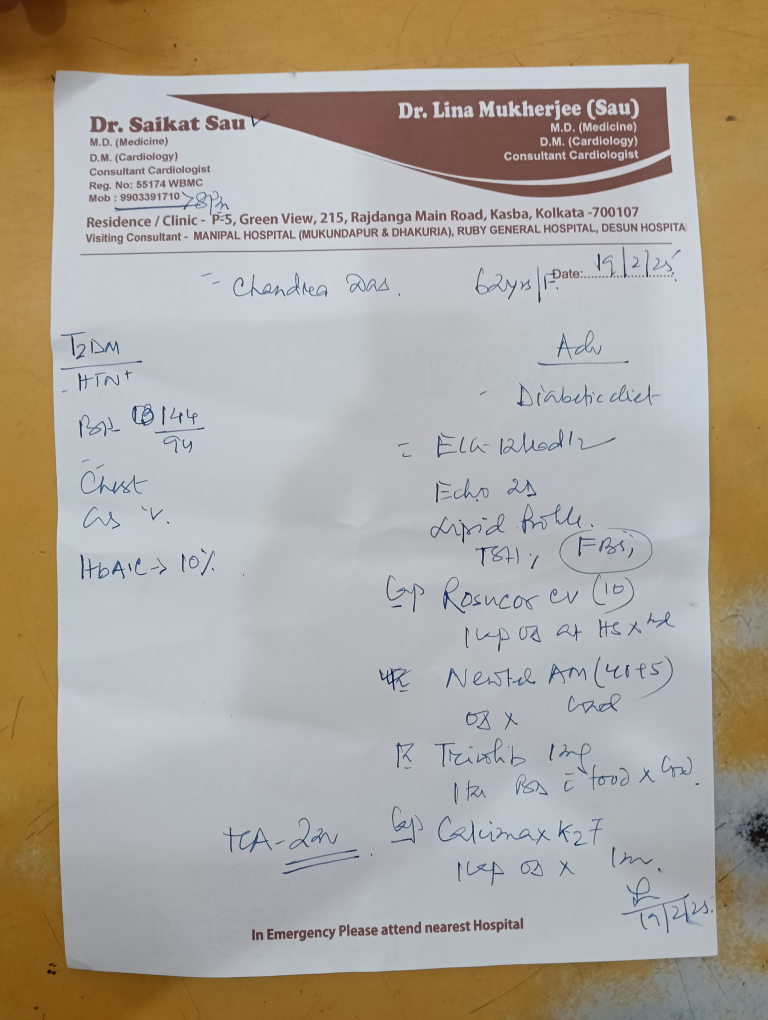 Dr. Saikat Sau
M.D. (Medicine)
D.M. (Cardiology)
Consultant Cardiologist
Reg. No: 55174 WBMC
Mob : 9903391710
Dr. Lina Mukherjee (Sau)
M.D. (Medicine)
D.M. (Cardiology)
Consultant Cardiologist
Residence / Clinic - P-5, Green View, 215, Rajdanga Main Road, Kasba, Kolkata -700107
Visiting Consultant - MANIPAL HOSPITAL (MUKUNDAPUR & DHAKURIA), RUBY GENERAL HOSPITAL, DESUN HOSPITA
Chandra Das. 62yrs/F. Date: 19/2/25
T2DM
HTN+
144
94
Chest
HbA1C → 10%
Adv
- Diabetic diet
ECG
Echo 2D
Lipid Profile.
TSH, FBS,
Cap Rosucor CV (10)
1 cap OD at HS x
AM (40+5)
OD x Cont
1mg
BD c food x Cont.
Cap Calcimax K27
1 cap OD x 1m.
- 2m
19/2/25.
In Emergency Please attend nearest Hospital